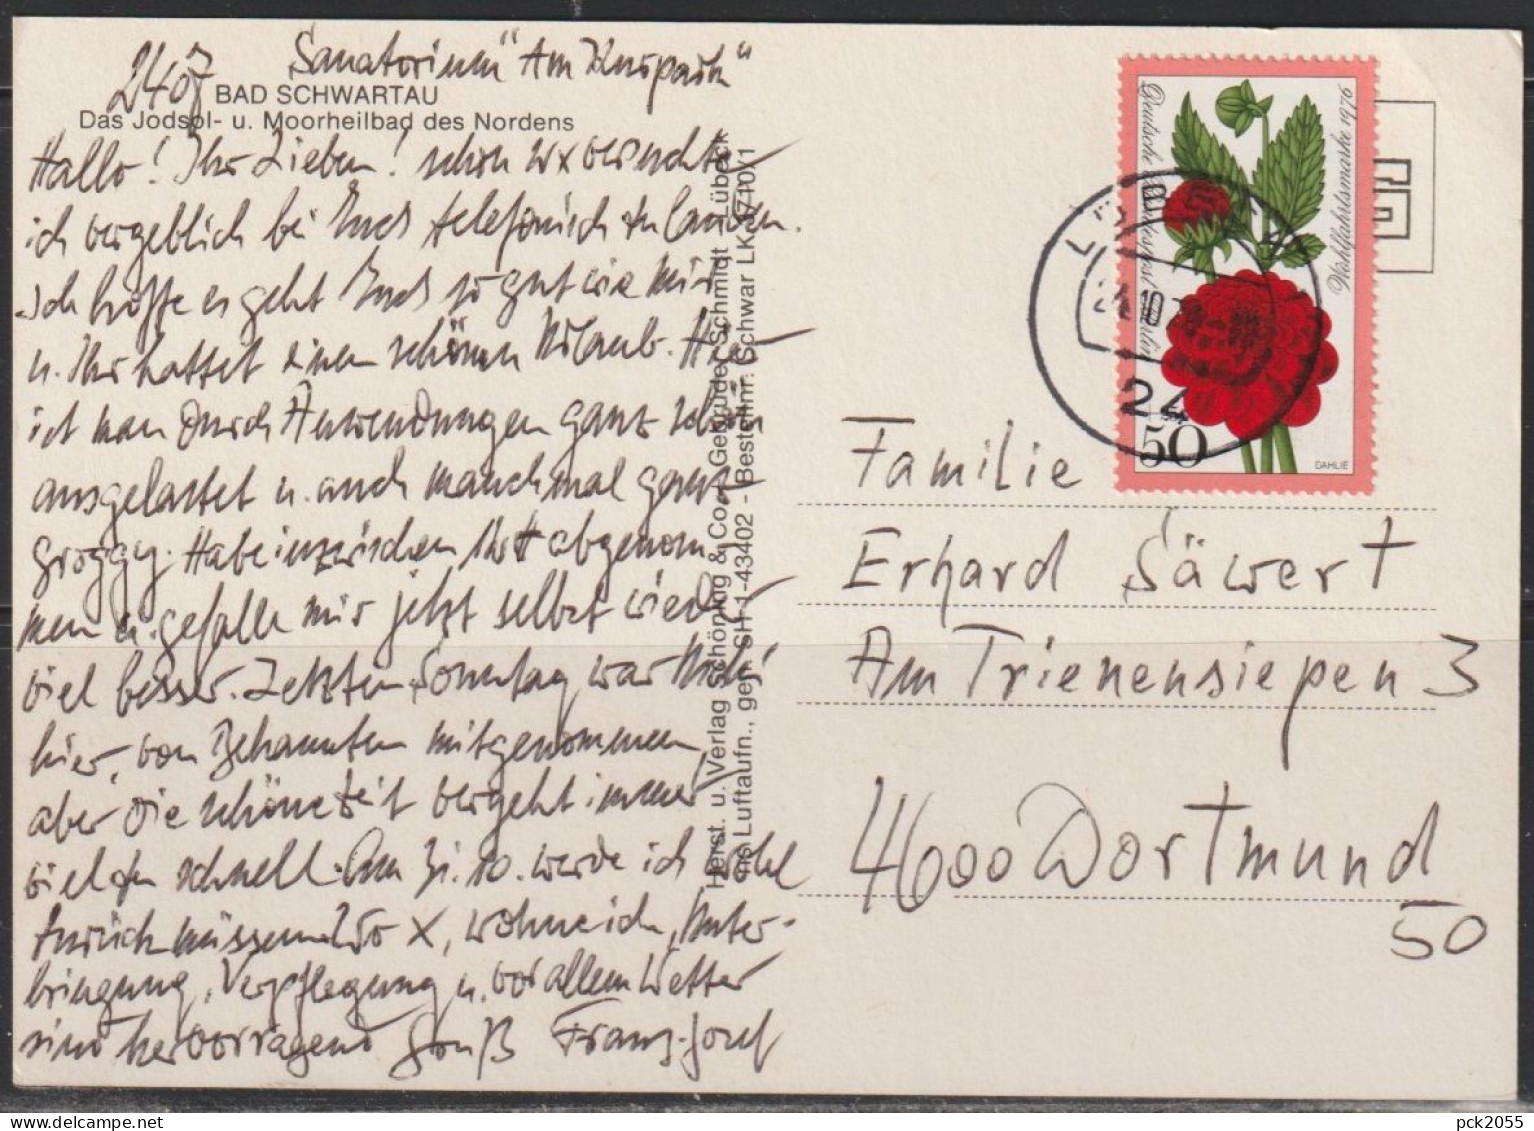 Sanatorium "Am Kurpark"
2407 BAD SCHWARTAU
Das Jodsol- u. Moorheilbad des Nordens
Hallo! Ihr Lieben! schon versuchte
ich vergeblich bei Euch telefonisch zu landen.
Ich hoffe es geht Euch so gut wie mir
u. Ihr hattet einen schönen Urlaub. Hier
ist man durch Anwendungen ganz schön
ausgelastet u. auch manchmal ganz
groggy. Habe inzwischen abgenom-
men u. gefalle mir jetzt selbst wieder
viel besser. Letzten Sonntag war
hier, von Bekannten mitgenommen,
aber die schöne Zeit vergeht immer
viel zu schnell. Am 31.10. werde ich wohl
zurück müssen. Wo X, wohne ich, Unter-
bringung, Verpflegung u. vor allem Wetter
sind hervorragend Gruß Franz-Josef
Herst. u. Verlag Schöning & Co + Gebrüder Schmidt Lübeck
Luftaufn., gen. SH 1-43402 - Bestellnr. Schwar LK
Deutsche Bundespost Berlin
Wohlfahrtsmarke 1976
50
DAHLIE
24
Familie
Erhard Säwert
Am Trienensiepen 3
4600 Dortmund
50
pck2055